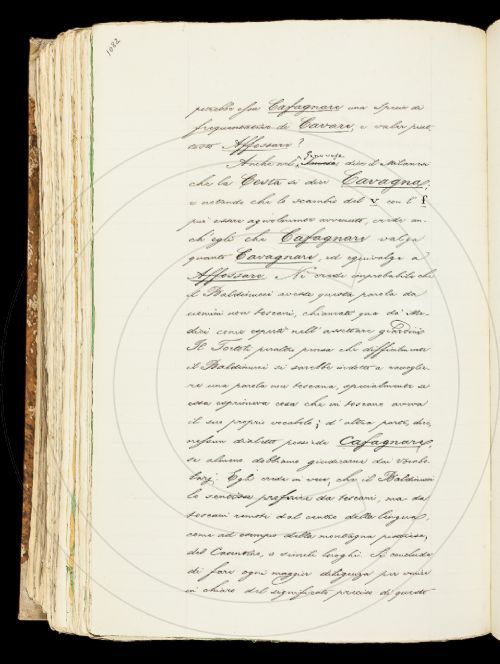 1082
potrebbe essere Cafagnare una specie di
frequentativo di Cavare, e valer piut-
tosto Affossare?
Anche nel Genovese dice il Milanesi
che la Cesta si dice Cavagna,
e notando che lo scambio del v con l' f
può essere agevolmente avvenuto, crede an-
ch'egli che Cafagnare valga
quanto Cavagnare, ed equivalga a
Affossare. Nè crede improbabile che
il Baldinucci avesse questa parola da
uomini non toscani, chiamati qua da' Me-
dici come esperti nell' assettare giardini
Il Tortoli peraltro pensa che difficilmente
il Baldinucci si sarebbe indotto a raccoglie-
re una parola non toscana, specialmente se
essa esprimeva cosa che in toscano aveva
il suo proprio vocabolo; d' altra parte dice,
nessun dialetto possiede Cafagnare,
se almeno dobbiamo giudicarne dai Vocabo-
larj. Egli crede in vece, che il Baldinucci
lo sentisse proferire da toscani, ma da
toscani remoti dal centro della lingua,
come ad esempio della montagna pistoiese,
del Casentino, o simili luoghi. Si conclude
di fare ogni maggior diligenza per venire
in chiaro del significato preciso di questo